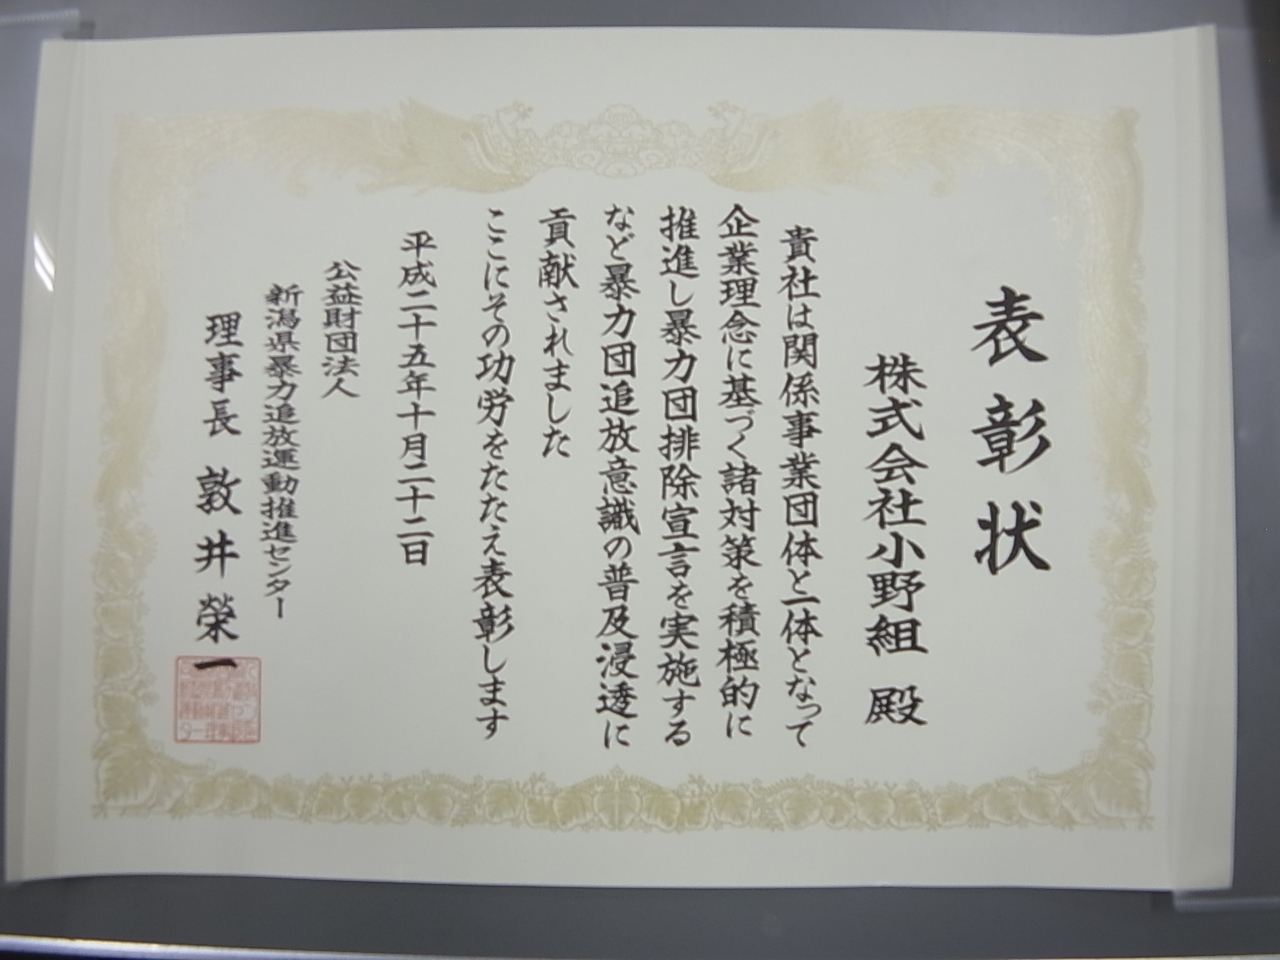 表彰状
株式会社小野組 殿
貴社は関係事業団体と一体となって
企業理念に基づく諸対策を積極的に
推進し暴力団排除宣言を実施する
など暴力団追放意識の普及浸透に
貢献されました
ここにその功労をたたえ表彰します
平成二十五年十月二十二日
公益財団法人
新潟県暴力追放運動推進センター
理事長 敦井榮一